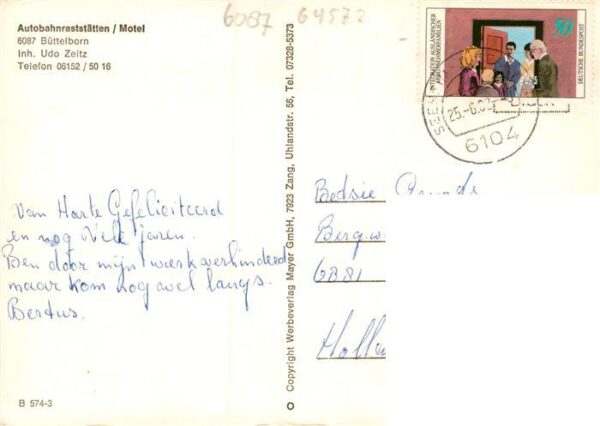 6087 64572
Autobahnraststätten / Motel
6087 Büttelborn
Inh. Udo Zeitz
Telefon 06152 / 50 16
INTEGRATION AUSLÄNDISCHER
ARBEITNEHMERFAMILIEN
50
DEUTSCHE BUNDESPOST
25.-6.
6104
Van Harte Gefeliciteerd
en nog vele jaren.
Ben door mijn werk verhinderd
maar kom nog wel langs.
Bertus.
Betsie
Berg
6881
Holla
© Copyright Werbeverlag Mayer GmbH, 7923 Zang, Uhlandstr. 56, Tel. 07328-5373
B 574-3